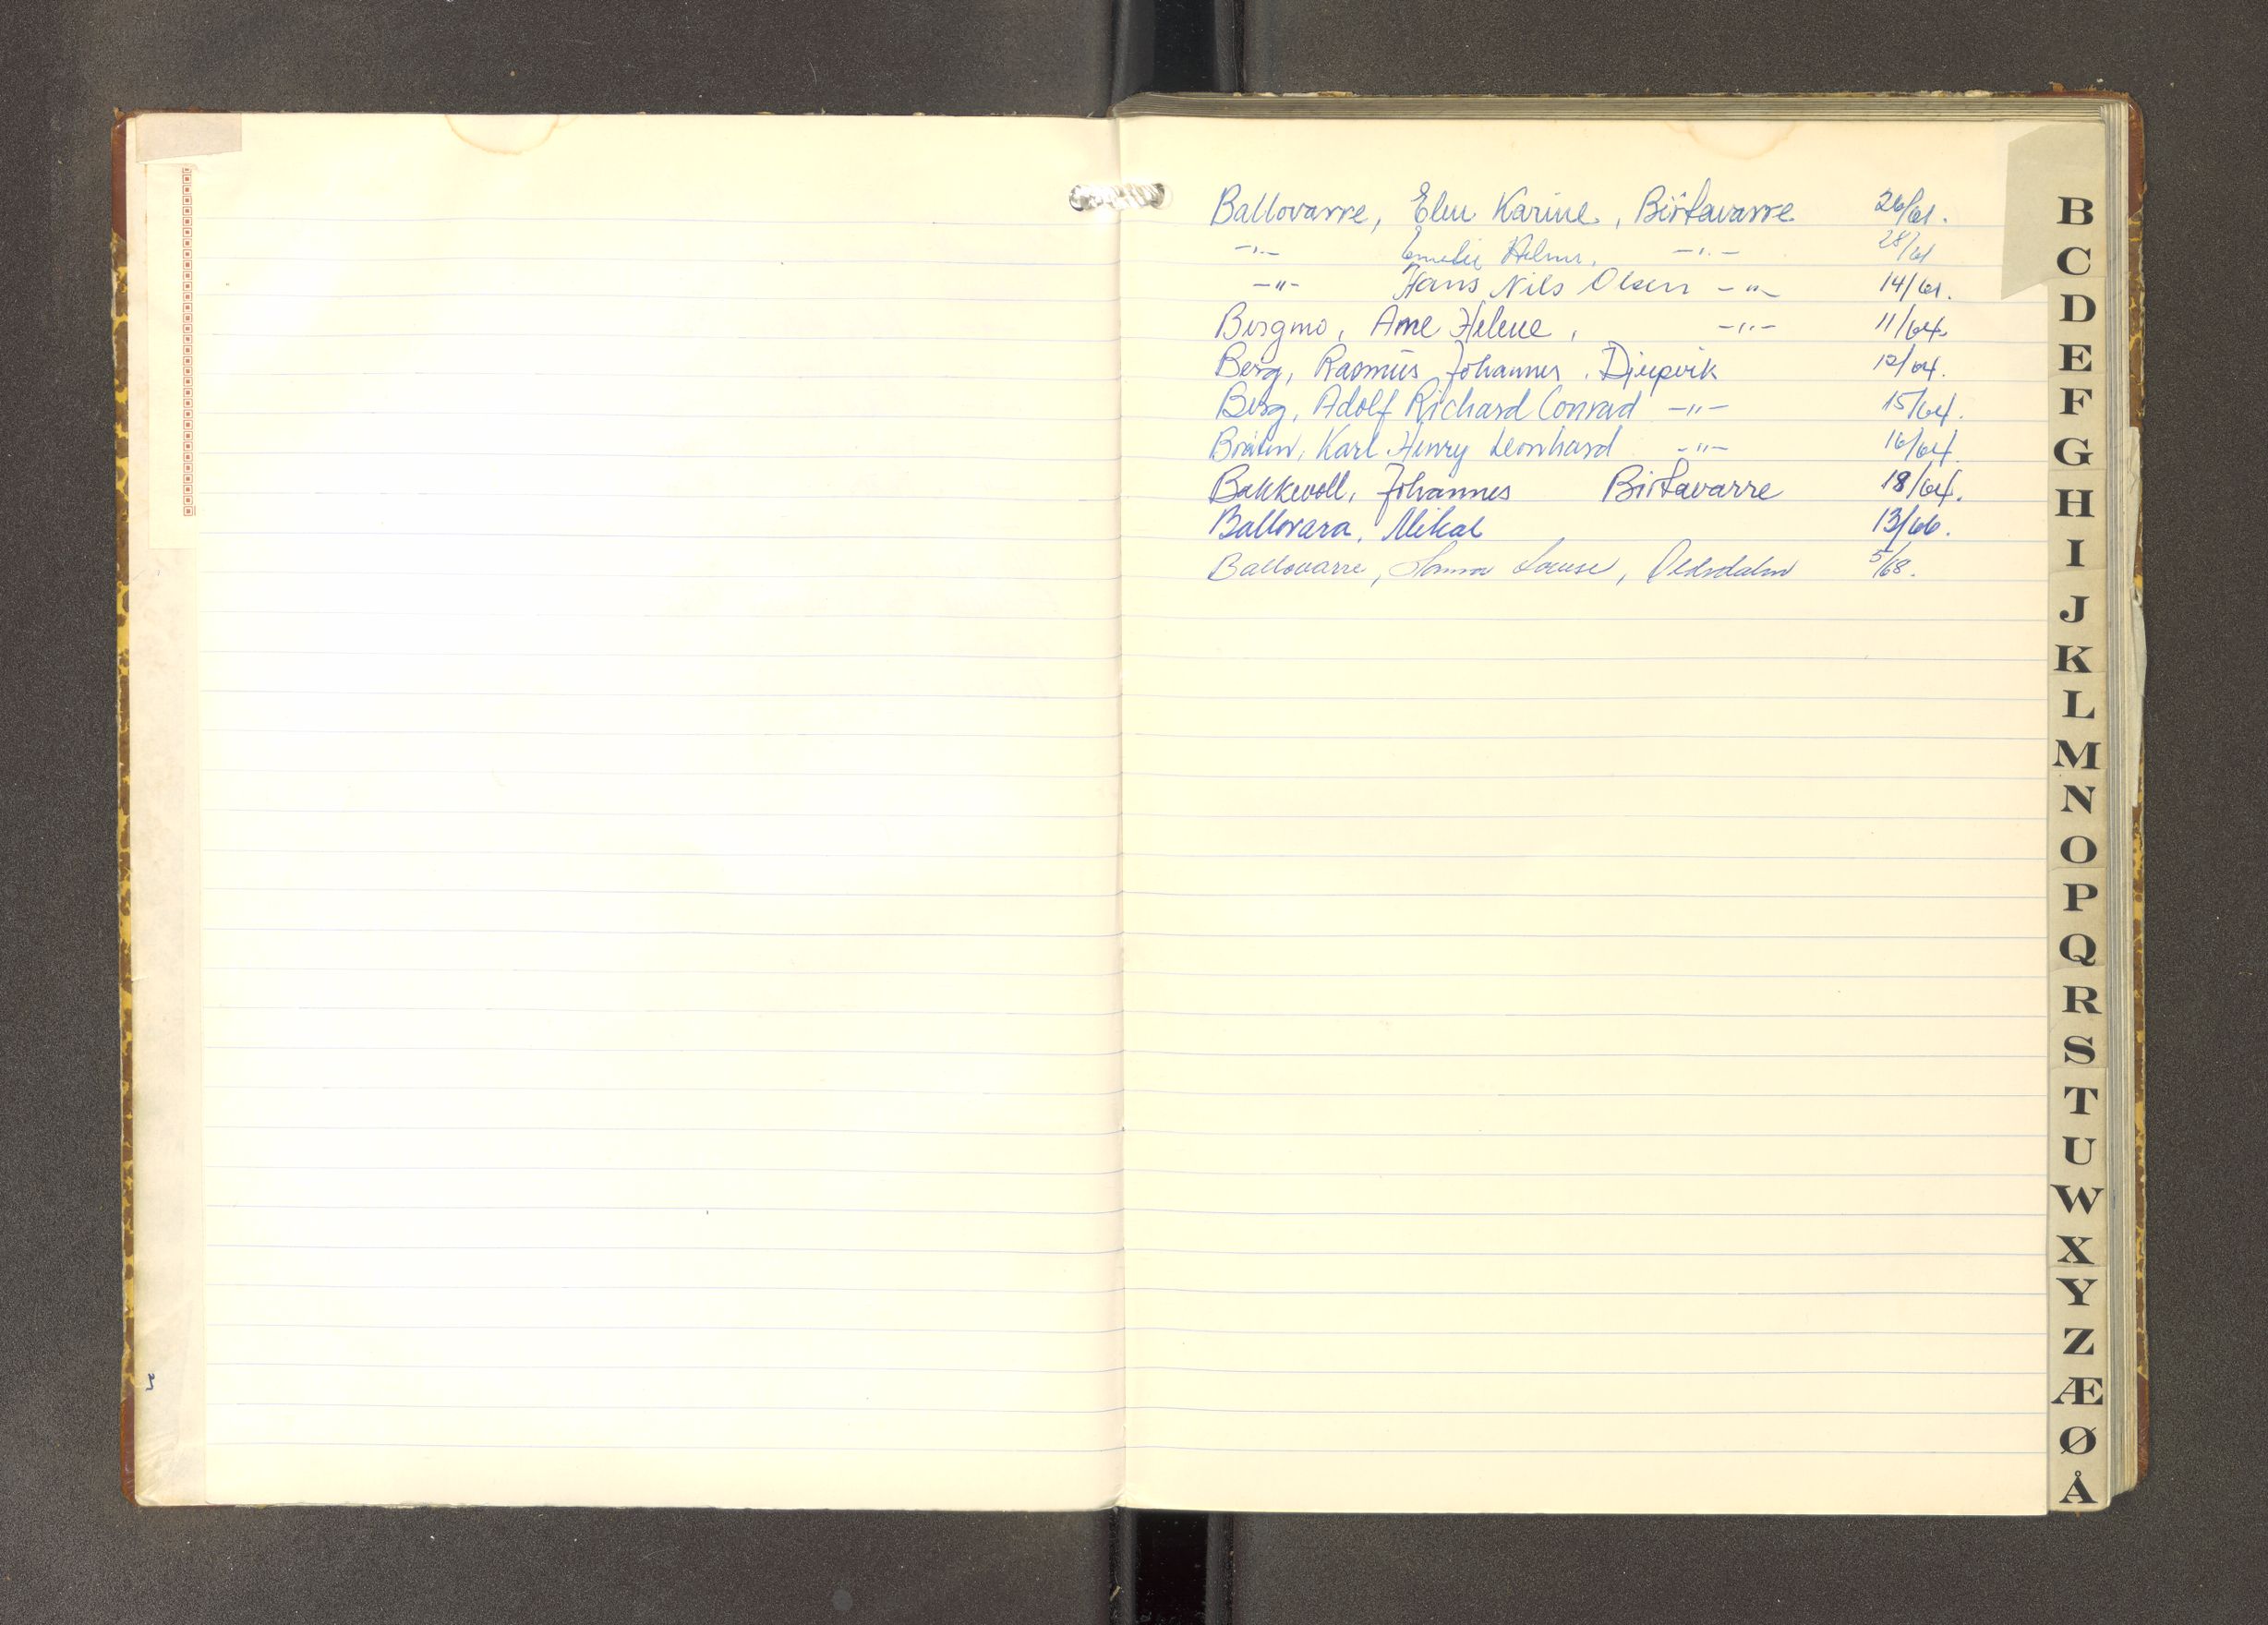 Ballovarre, Elen Karine, Birtavarre 26/61.
-"- Emelie Helmr. -"- 28/61
-"- Hans Nils Olsen -"- 14/61.
Bergmo, Arne Helene, -"- 11/64
Berg, Rasmus Johannes. Djupvik 12/64.
Berg, Adolf Richard Conrad -"- 15/64.
Bråten, Karl Henry Leonhard -"- 16/64.
Bakkevoll, Johannes Birtavarre 18/64.
Ballovara, Mikal 13/66.
Ballovarre, Louise, 5/68.
B
C
D
E
F
G
H
I
J
K
L
M
N
O
P
Q
R
S
T
U
W
X
Y
Z
Æ
Ø
Å